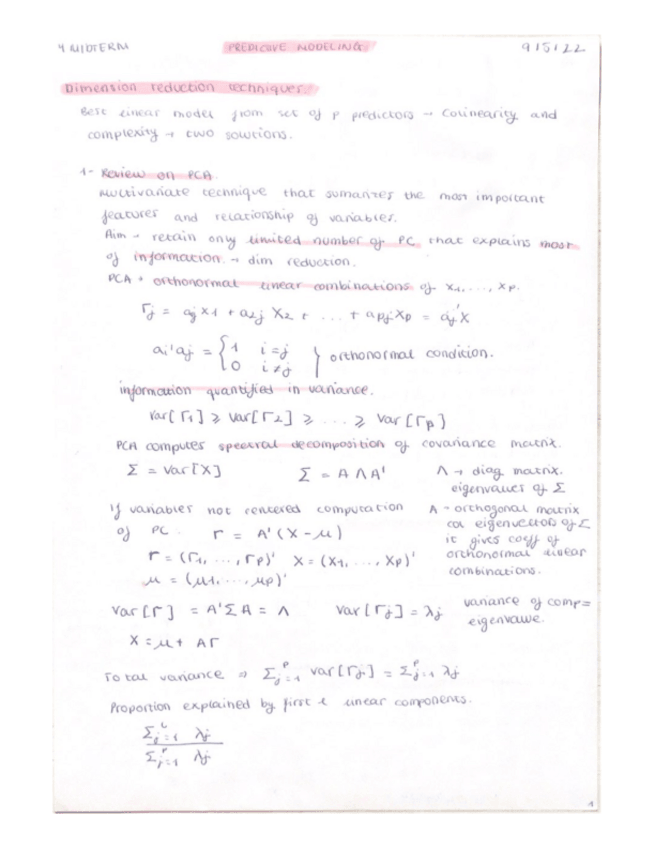 4 MIDTERM PREDICTIVE MODELING 9/5/22
Dimension reduction techniques.
Best linear model from set of p predictors → Colinearity and
complexity → two solutions.
1- Review on PCA.
Multivariate technique that sumarizes the most important
features and relationship of variables.
Aim → retain only limited number of PC that explains most
of information. → dim reduction.
PCA → orthonormal linear combinations of X1, ..., Xp.
Γj = a1j X1 + a2j X2 + ... + apj Xp = aj'X
ai'aj = { 1 i=j
0 i≠j } orthonormal condition.
information quantified in variance.
Var[Γ1] ≥ Var[Γ2] ≥ ... ≥ Var[Γp]
PCA computes spectral decomposition of covariance matrix.
Σ = Var[X] Σ = A Λ A' Λ → diag matrix.
eigenvalues of Σ
If variables not centered computation
of PC. Γ = A'(X-μ)
Γ = (Γ1, ..., Γp)' X = (X1, ..., Xp)'
μ = (μ1, ..., μp)'
A → orthogonal matrix
col eigenvectors of Σ
it gives coeff of
orthonormal linear
combinations.
Var[Γ] = A'ΣA = Λ Var[Γj] = λj variance of comp =
eigenvalue.
X = μ + AΓ
Total variance ⇒ Σ j=1 p Var[Γj] = Σ j=1 p λj
Proportion explained by first l linear components.
Σ j=1 l λj
Σ j=1 p λj
1